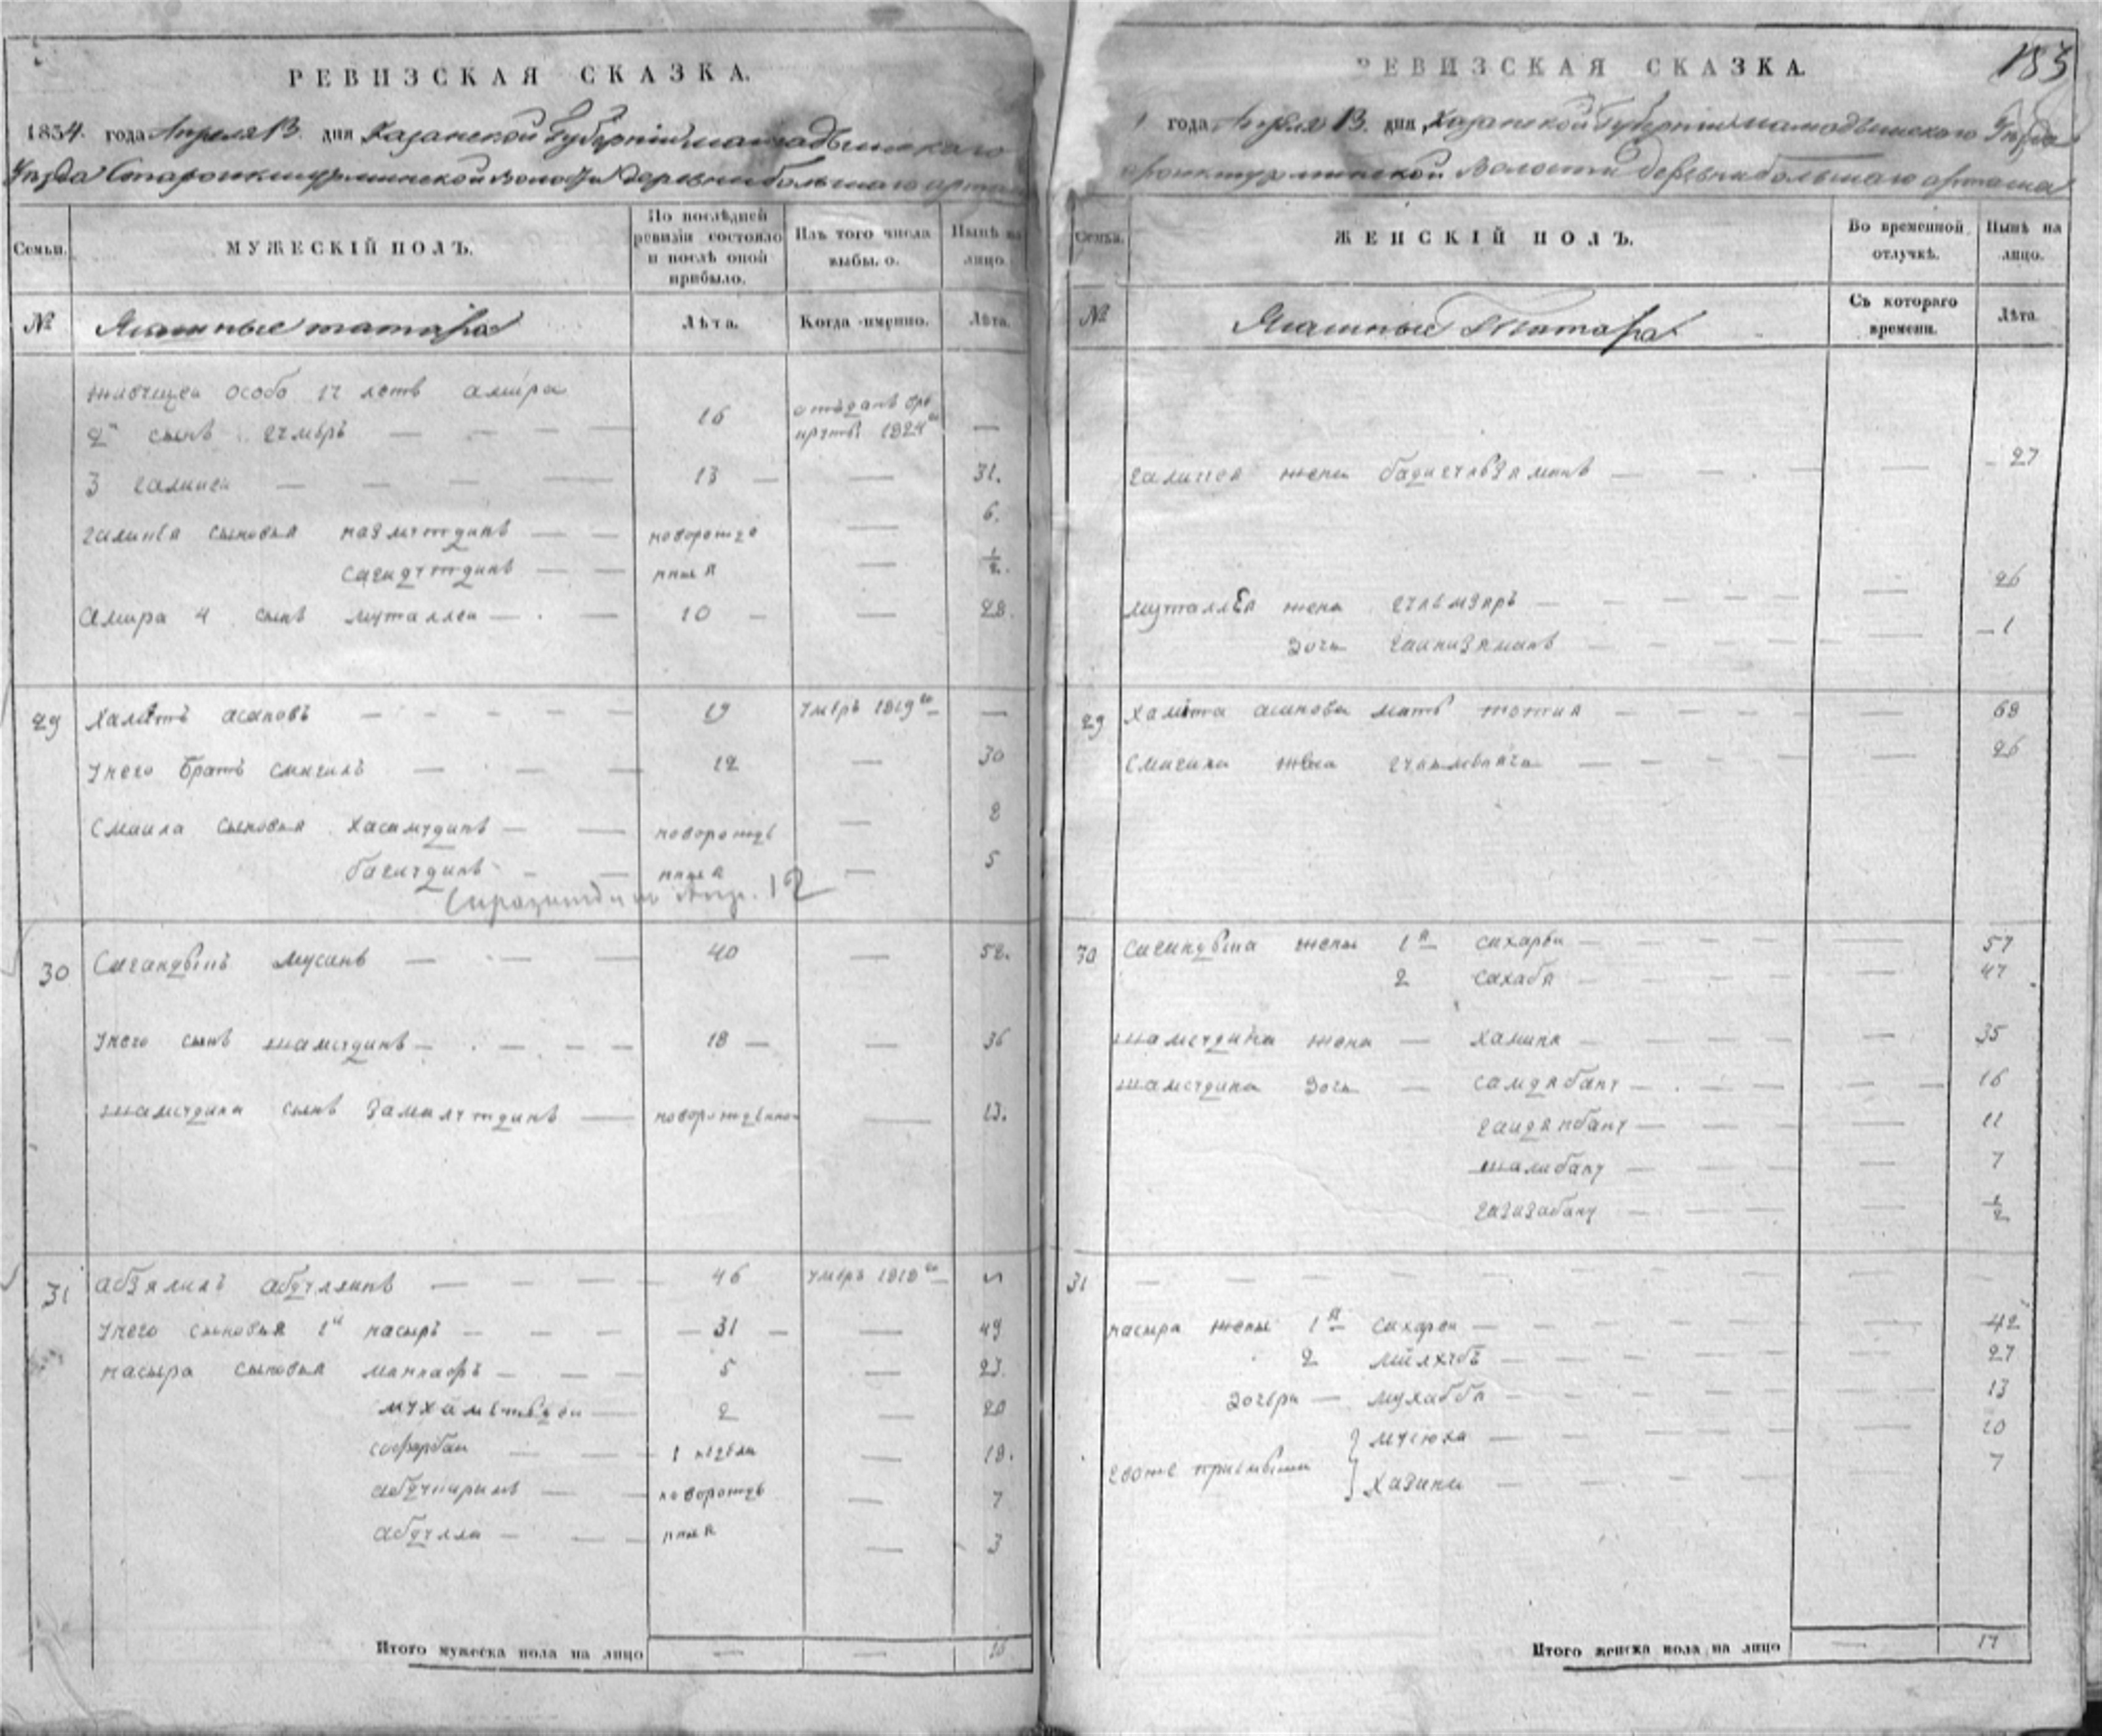 РЕВИЗСКАЯ СКАЗКА.
1834. года Апреля 13. дня Казанской Губернии мамадышскаго
Уезда Староикшурминской волости деревни большаго арташа
Семьи.
МУЖЕСКІЙ ПОЛЪ.
По послѣдней ревизіи состояло и послѣ оной прибыло.
Изъ того числа выбыло.
Нынѣ на лицо.
№
Ясашные татара
Лѣта.
Когда именно.
Лѣта.
живущей особо 17 летъ амира
2й сынъ 16 отъданъ в рекруты 1824го —
3 галиней 13 — 31.
галинея сыновья назмутдинъ новорожде — 6.
сагидутдинъ нныя — 1/2.
амира 4 сынъ муталлей 10 — 28.
29 хамитъ асаповъ 19 умеръ 1819го —
у него братъ смагилъ 12 — 30
смаила сыновья хасамудинъ новорожде — 8
багаудинъ нныя — 5
12
30 Сагандыкъ мусинъ 40 — 52.
у него сынъ шамсудинъ 18 — 36
шамсудина сынъ замалутдинъ новорожденно — 13.
31 абзялилъ абдуллинъ 46 умеръ 1818го
у него сыновья 1й насыръ 31 — 49
насыра сыновья маннафъ 5 — 23.
мухаметвали 2 — 20
сафарбаи 1 недели — 18.
абдулкаримъ новорожде — 7
абдулла нныя — 3
Итого мужеска пола на лицо — — 16
РЕВИЗСКАЯ СКАЗКА.
183
года Апреля 13. дня Казанской Губернии мамадышскаго Уезда
роикшурминской Волости деревни большаго арташа
Семьи.
ЖЕНСКІЙ ПОЛЪ.
Во временной отлучкѣ.
Нынѣ на лицо.
№
Ясашные Татара
Съ котораго времени.
Лѣта.
галинея жена бадигулзяманъ — 27
муталлея жена — 26
дочь гайнизяманъ — 1
29 хамита асапова мать — 68
смагила жена — 26
30 сагандыка жены 1я сахарби — 57
2 сахабя — 47
шамсудина жена — халипя — 35
шамсудина дочь — саидябану — 16
гаидянбану — 11
шамибану — 7
газизабану — 1/2
31
насыра жены 1я сахарби — 42
2 — 27
дочери — мухабба — 13
10
хазипи — 7
Итого женска пола на лицо — 17